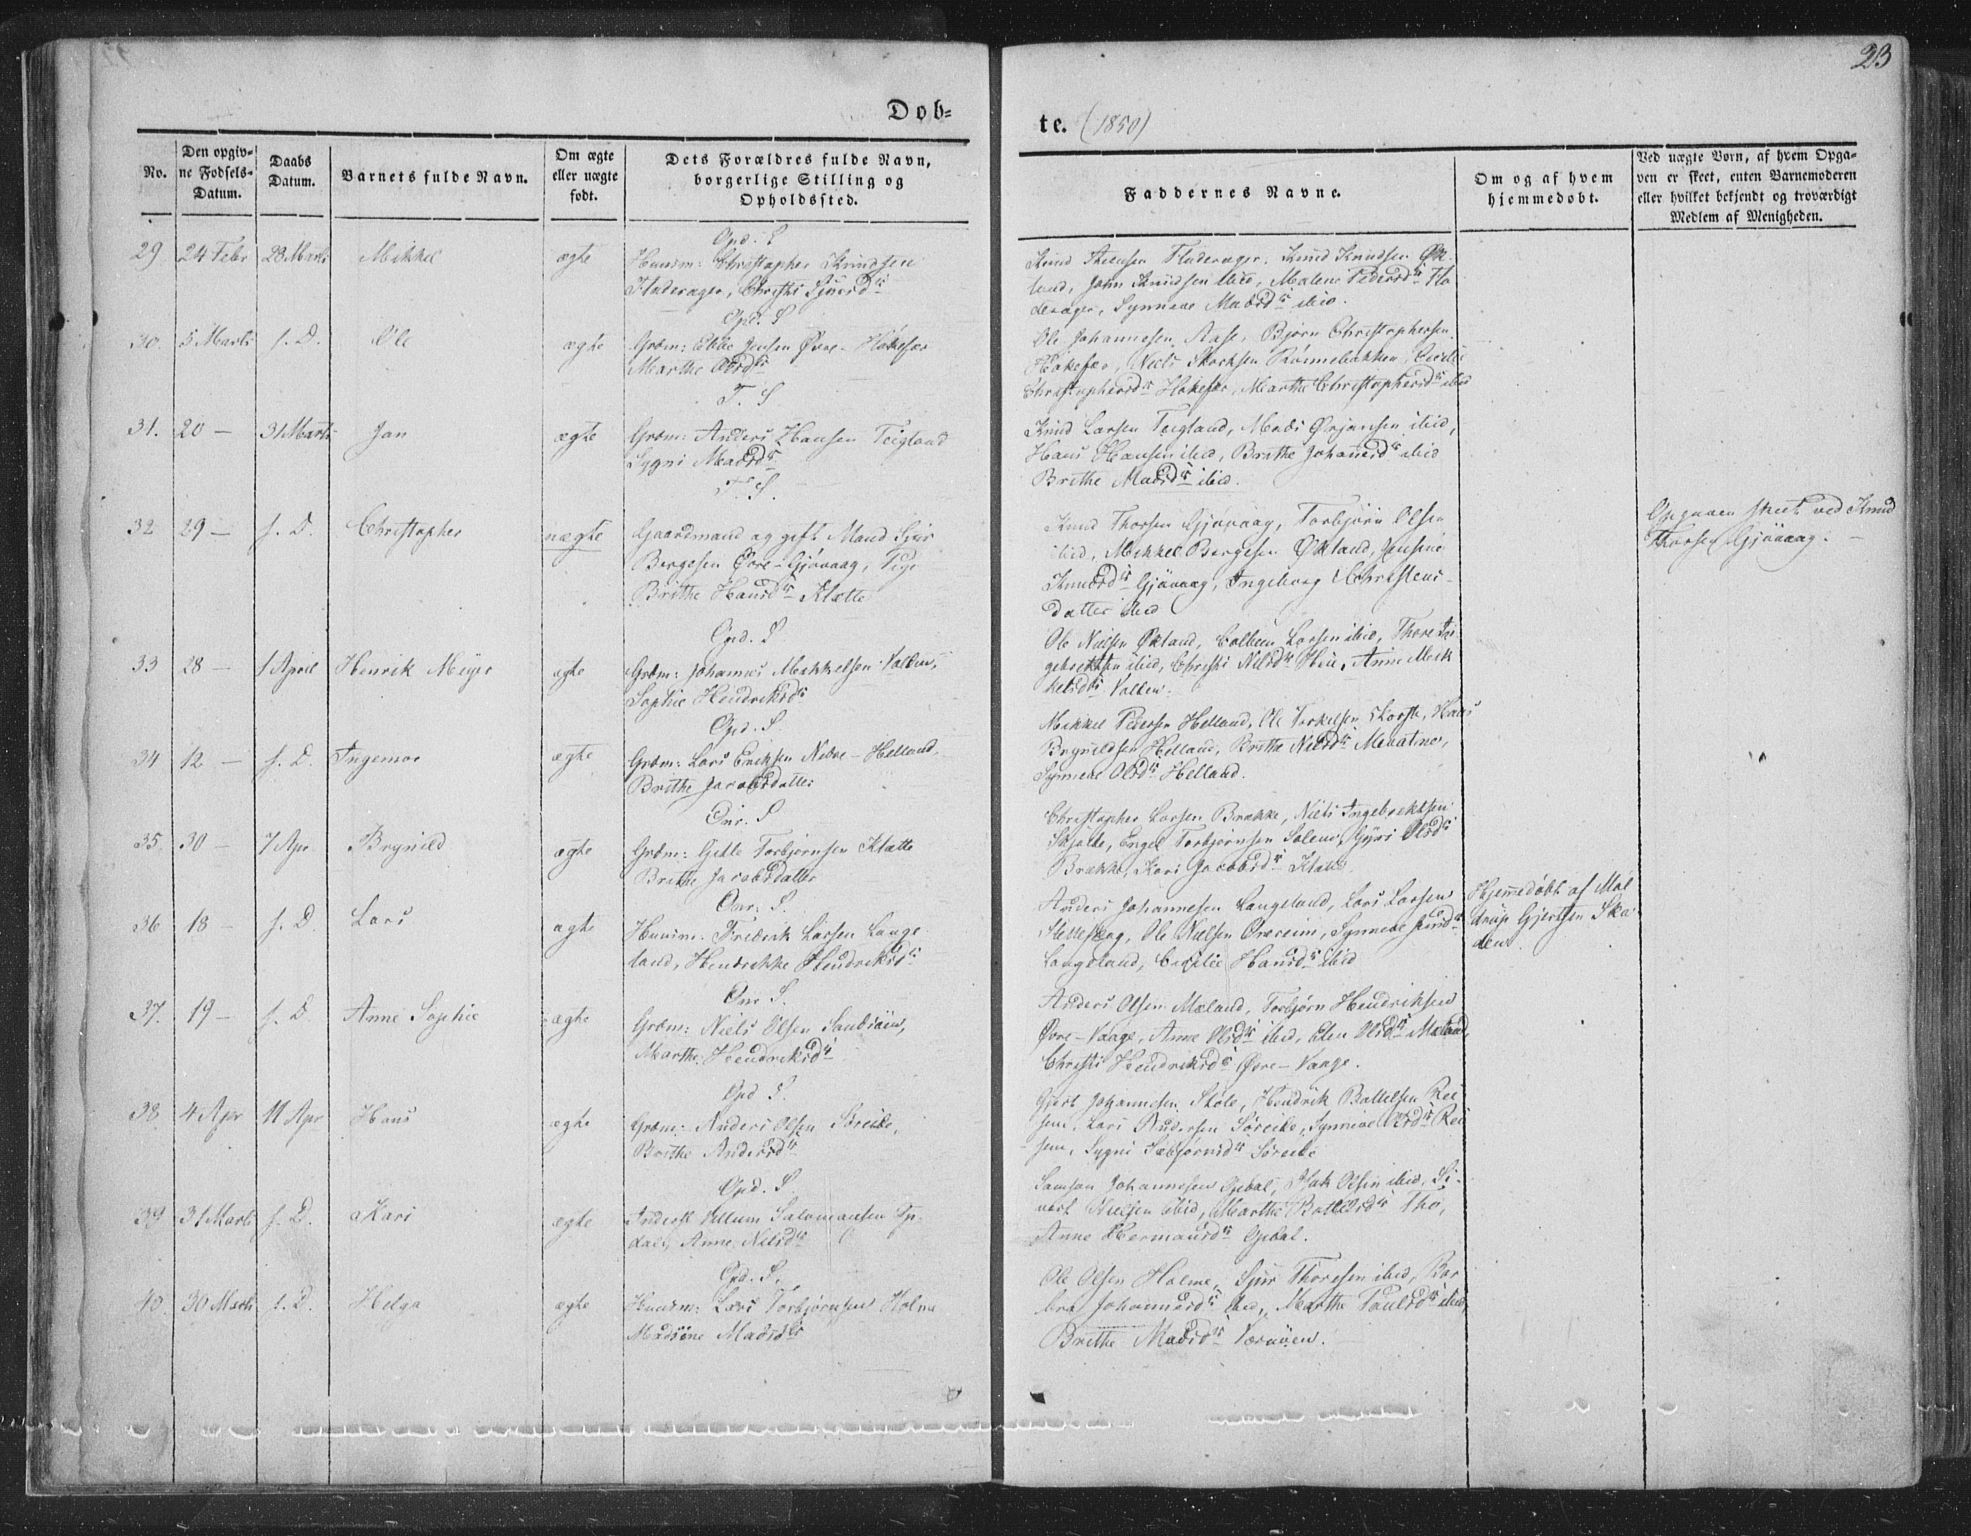 23
Døb=
te. (1850)
No.
Den opgiv=
ne Fødsels=
Datum.
Daabs
Datum.
Barnets fulde Navn.
Om ægte
eller uægte
født.
Dets Forældres fulde Navn,
borgerlige Stilling og
Opholdssted.
Faddernes Navne.
Om og af hvem
hjemmedøbt.
Ved uægte Børn, af hvem Opga=
ven er skeet, enten Barnemoderen
eller hvilket bekjendt og troværdigt
Medlem af Menigheden.
Opd. S
29. 24 Febr 28 Marts Mikkel ægte Huusm: Christopher Knudsen
Fladerager, Christi Sjursd
Knud Fladerager, Knud Knudsen Øk
land, John Knudsen ibid, Malene Pedersd Fla
derager, Synneve Madsd ibid.
Opd. S
30. 5 Marts s. D. Ole ægte Grdm: Jensen Øvre-Hakefær
Marthe Olsd
Ole Johannesen Aase, Bjørn Christophersen
Hakefær, Niels Rønnebakken, Cecilie
Christophersd Hakefær, Marthe Christophersd ibid
T. S
31. 20 — 31 Marts Jan ægte Grdm: Anders Hansen Teigland
Sygni Madsd
Knud Larsen Teigland, Mads Ørjansen ibid,
Hans Hansen ibid, Brithe Johannesd ibid
Brithe Madsd ibid.
T. S.
32 29 — s. D. Christopher uægte Gaardmand og gift Mand Sjur
Børgesen Øvre-Gjøvaag, Pige
Brithe Hansd Klette
Knud Thorsen Gjøvaag, Torbjørn Olsen
ibid, Mikkel Børgesen Økland,
Knudsd Gjøvaag, Ingeborg Christens-
datter ibid
Opgaven skeet ved Knud
Thorsen Gjøvaag. —
Opd. S
33 28 — 1 April Henrik Meyer ægte Grdm: Johannes Mikkelsen Valden,
Sophie Hendriksd
Ole Nielsen Økland, Larsen ibid, Thore In-
gebrektsen ibid, Christi Nilsd Anne Mik
kelsd Valden.
Opd. S
34 12 — s. D. Ingemoe ægte Grdm: Lars Eriksen Nedre-Helland,
Brithe Jacobsdatter
Mikkel Pedersen Helland, Ole Torkelsen Hans
Brynildsen Helland, Brithe Nilsd
Synneve Olsd Helland.
Onr. S
35 30 — 7 Apr Brynild ægte Grdm: Gitle Torbjørnsen Klette
Brithe Jacobsdatter
Christopher Larsen Brække, Niels Ingebrektsen
Engel Torbjørnsen Olsd
Brække, Kari Jacobsd Klette
Onr. S.
36 18 — s. D. Lars ægte Huusm: Fredrik Larsen Lange
land, Hendrikke Hendriksd
Anders Johannesen Langeland, Lars Larsen
Ole Nielsen Synneve
Langeland, Cecilie Hansd ibid
Hjemmedøbt af Mal
Gjertsen Ska
den
Onr S.
37. 19 — s. D. Anne Sophie ægte Grdm: Niels Olsen Sandvæn,
Marthe Hendriksd
Anders Olsen Mæland, Torbjørn Hendriksen
Øvre-Vaage, Anne Olsd ibid, Olsd Mæland,
Christi Hendriksd Øvre-Vaage.
Opd S.
38 4 Apr 11 Apr Hans ægte Grdm: Anders Olsen Søreide,
Brithe Andersd
Gjert Johannesen Hendrik Baltelsen Rei
sen, Lars Andersen Søreide, Synneve Olsd Rei
sen, Sygni Søreide
Opd. S
39 31 Marts s. D. Kari ægte Anders Villum Salomonsen Op
dal, Anne Nilsd
Samson Johannesen Opdal, Olsen ibid, Si-
vert ibid, Marthe
Anne Hermandsd Opdal.
Opd. S.
40. 30 Marts s. D. Helga ægte Huusm: Lars Torbjørnsen Holme
Madsine Madsd
Ole Olsen Holme, Sjur Thoresen ibid, Bar
bra Johannesd ibid, Marthe Paulsd ibid,
Brithe Madsd Værøen.